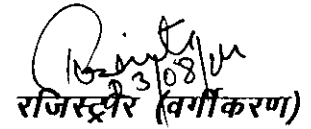 3/08/
रजिस्ट्रैर (वर्गीकरण)